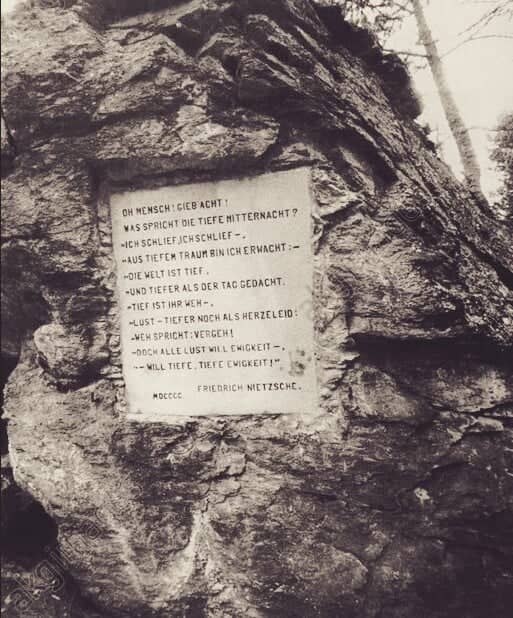 OH MENSCH! GIEB ACHT!
WAS SPRICHT DIE TIEFE MITTERNACHT?
»ICH SCHLIEF, ICH SCHLIEF –,
»AUS TIEFEM TRAUM BIN ICH ERWACHT: –
»DIE WELT IST TIEF,
»UND TIEFER ALS DER TAG GEDACHT.
»TIEF IST IHR WEH –,
»LUST – TIEFER NOCH ALS HERZELEID:
»WEH SPRICHT: VERGEH!
»DOCH ALLE LUST WILL EWIGKEIT –,
»– WILL TIEFE, TIEFE EWIGKEIT!"
FRIEDRICH NIETZSCHE.
MDCCCC